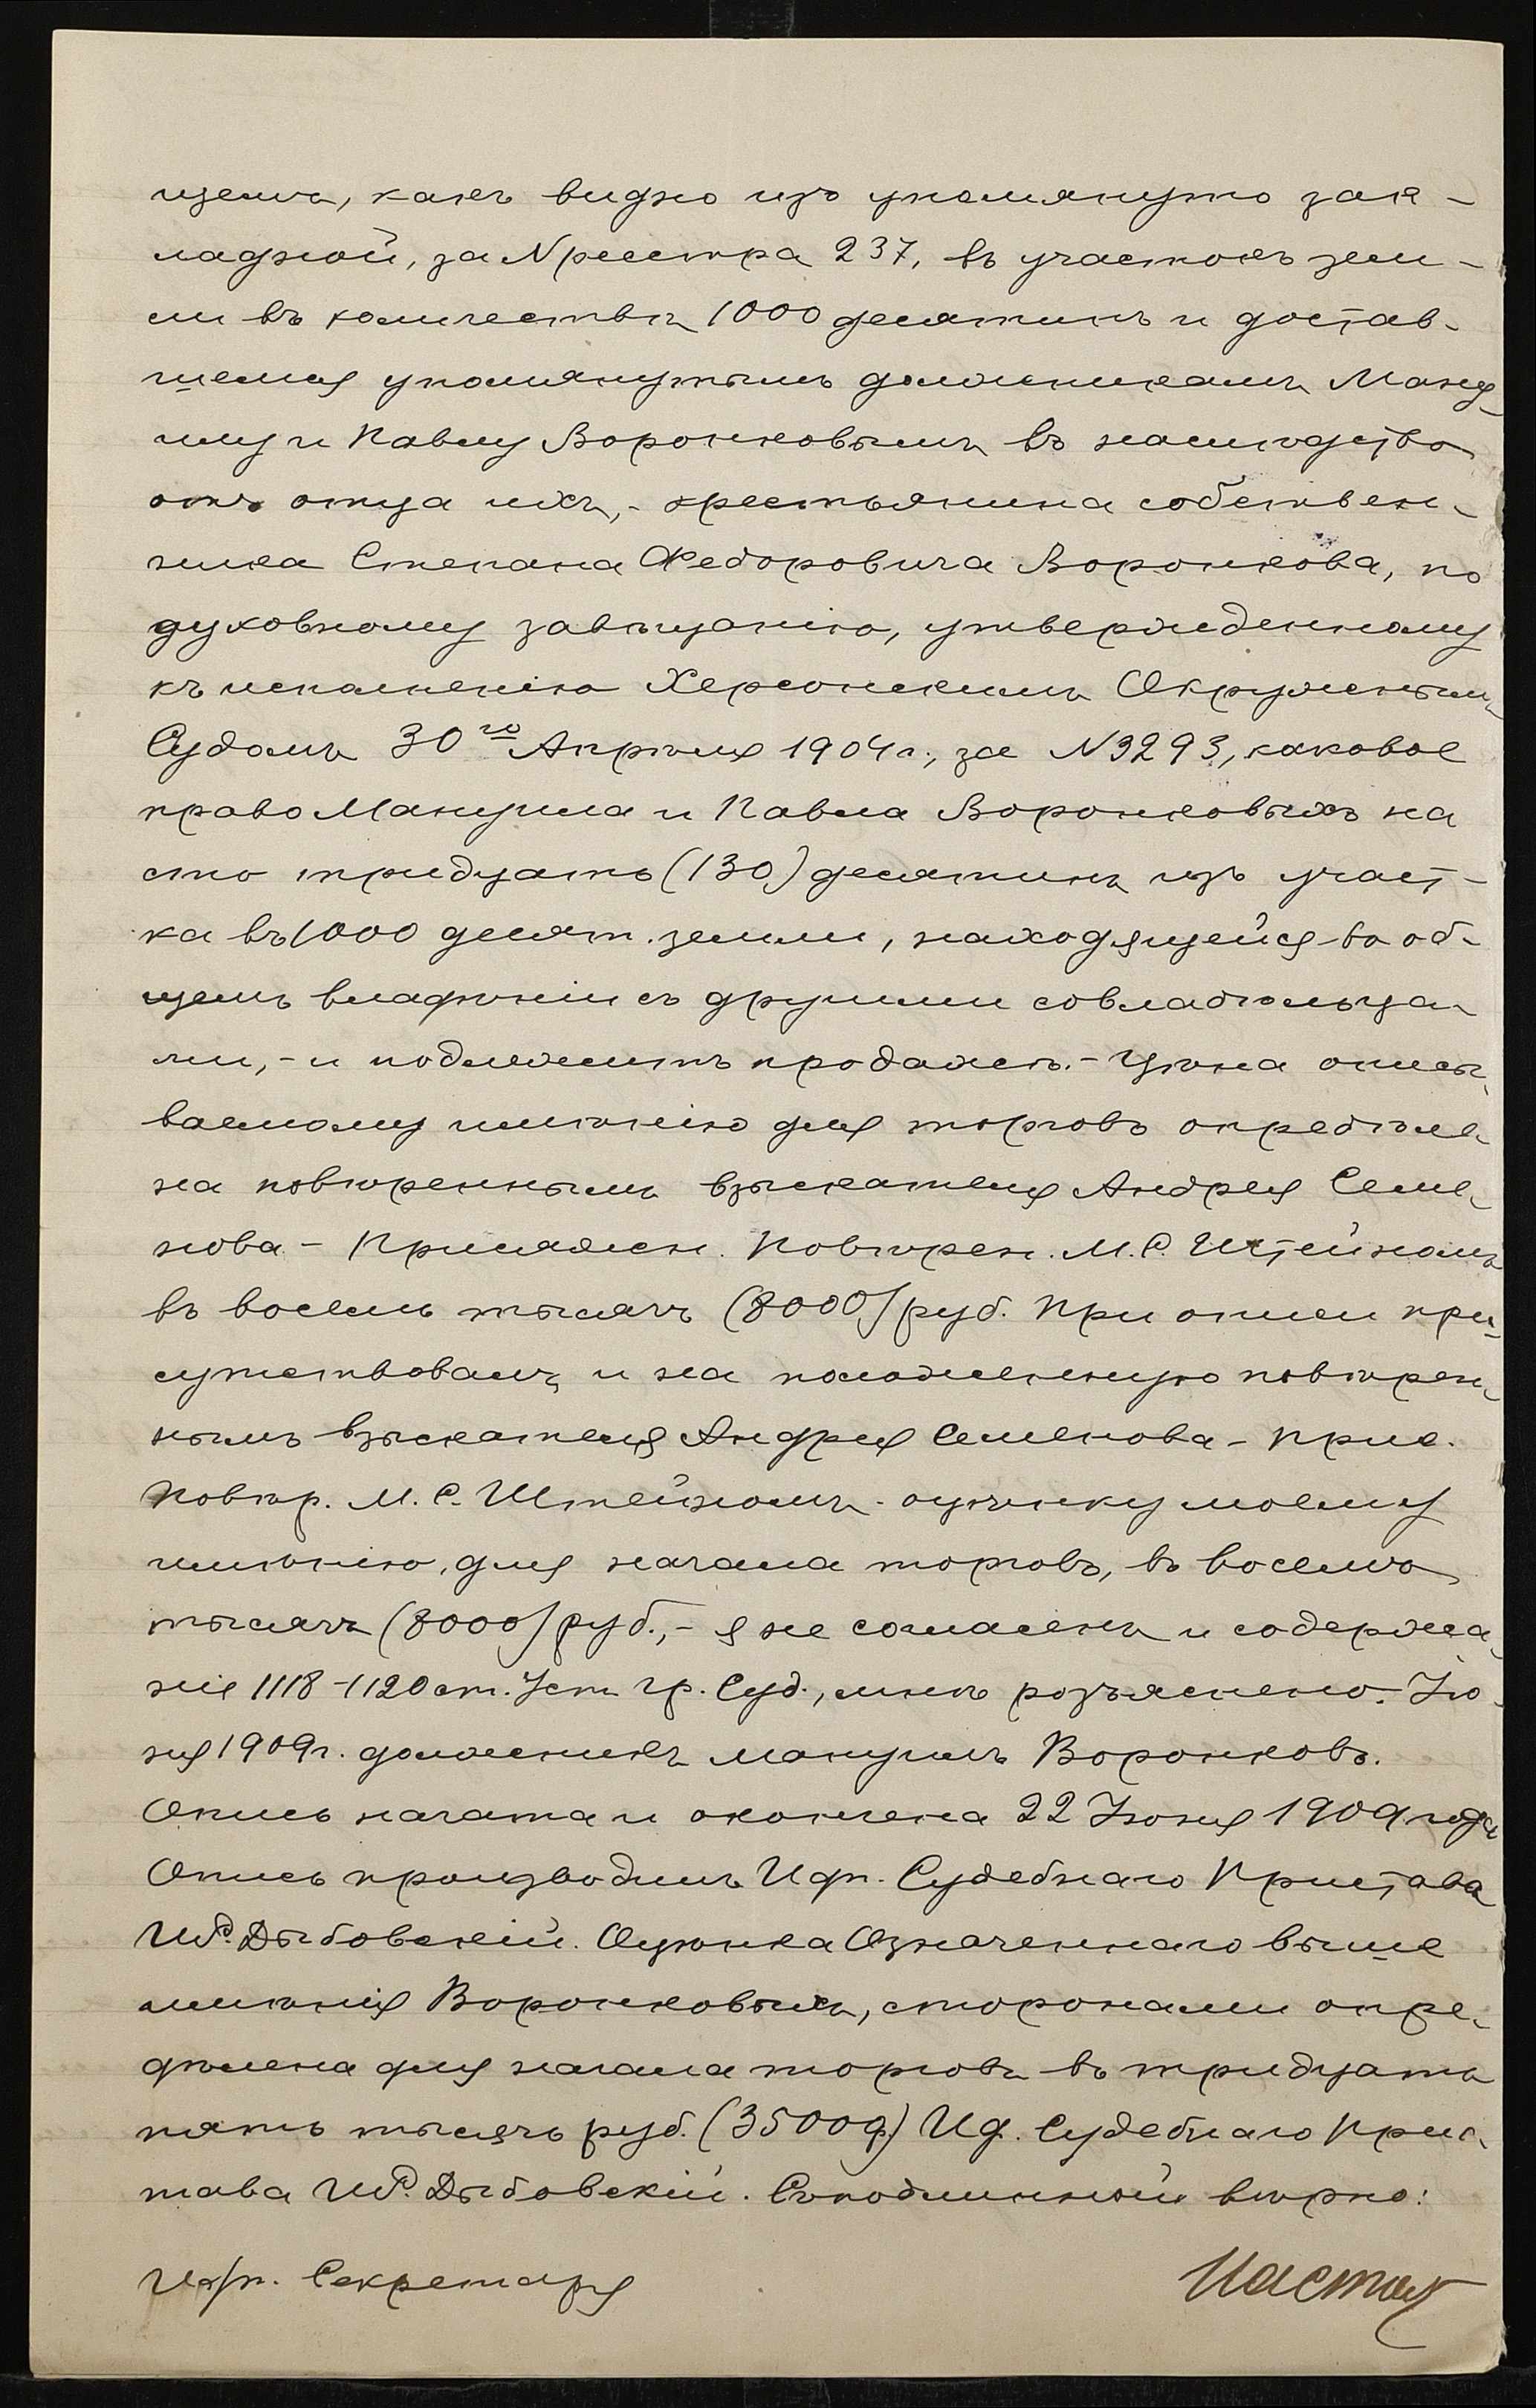 щемъ, какъ видно изъ упомянуто зак-
ладной, за № реестра 237, въ участокъ зем-
ли въ количествѣ 1000 десятинъ и достав-
шемся упомянутымъ должникамъМану-
илу и Павлу Воронковымъ въ наслѣдство
отъ отца ихъ,- крестьянина собствен-
ника Степана Федоровича Воронкова, по
духовному завѣщанію, утвержденному
къ исполненію Херсонскимъ Окружнымъ
Судомъ 30го Апрѣля 1904 г., за №3293, каковое
право Мануила и Павла Воронковыхъ на
сто тридцать (130) десятинъ изъ участ-
ка въ 1000 десят. земли, находящейся во об-
щемъ владѣніи съ другими совладѣльца-
ми,- и подлежитъ продажѣ.- Цѣна описы-
ваемому имѣнію для торговъ опредѣле-
на повѣреннымъ взыскателя Андрея Семе-
нова - Присяжн. Повѣрен. М. С. Штейномъ
въ восемь тысячъ (8000) руб. При описи при-
сутствовалъ и на положенную повѣрен-
нымъ взыскателя Андрея Семенова - Прис.
Повѣр. М. С. Штейномъ - оцѣнку моему
имѣнію, для начала торговъ, въ восемь
тысячъ (8000) руб.,- я не согласенъ и содержа-
ніе 1118-1120 ст. Уст. Гр. Суд., мнѣ розъяснено. Iю-
ня 1909 г. должникъ Мануилъ Воронковъ.
Опись начата и окончена 22 Iюня 1909 года
Опись производилъ И д. Судебнаго Пристава
Дыбовскій. Оцѣнка Означеннаго выше
имѣнія Воронковыхъ, сторонами опре-
дѣлена для начала торговъ въ тридцать
пять тысячъ руб. (35000) И д. Судебнаго Прис-
тава Дыбовскій. Съ подлиннымъ вѣрно:
И д. Секретаря